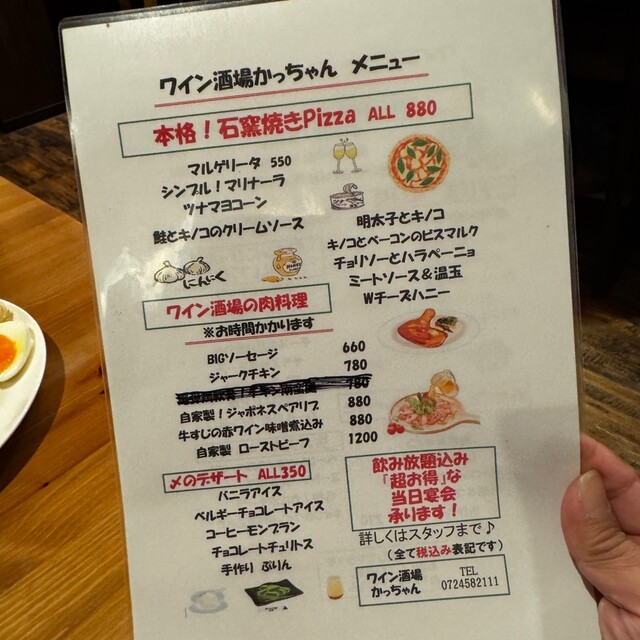 ワイン酒場かっちゃん メニュー
本格！石窯焼きPizza ALL 880
マルゲリータ 550
シンプル！マリナーラ
ツナマヨコーン
鮭とキノコのクリームソース
明太子とキノコ
キノコとベーコンのビスマルク
チョリソーとハラペーニョ
ミートソース＆温玉
Wチーズハニー
にんにく
ワイン酒場の肉料理
※お時間かかります
BIGソーセージ 660
ジャークチキン 780
780
自家製！ジャポネスペアリブ 880
牛すじの赤ワイン味噌煮込み 880
自家製 ローストビーフ 1200
〆のデザート ALL350
バニラアイス
ベルギーチョコレートアイス
コーヒーモンブラン
チョコレートチュリトス
手作り ぷりん
飲み放題込み
『超お得』な
当日宴会
承ります！
詳しくはスタッフまで♪
（全て税込み表記です）
ワイン酒場 TEL
かっちゃん 0724582111